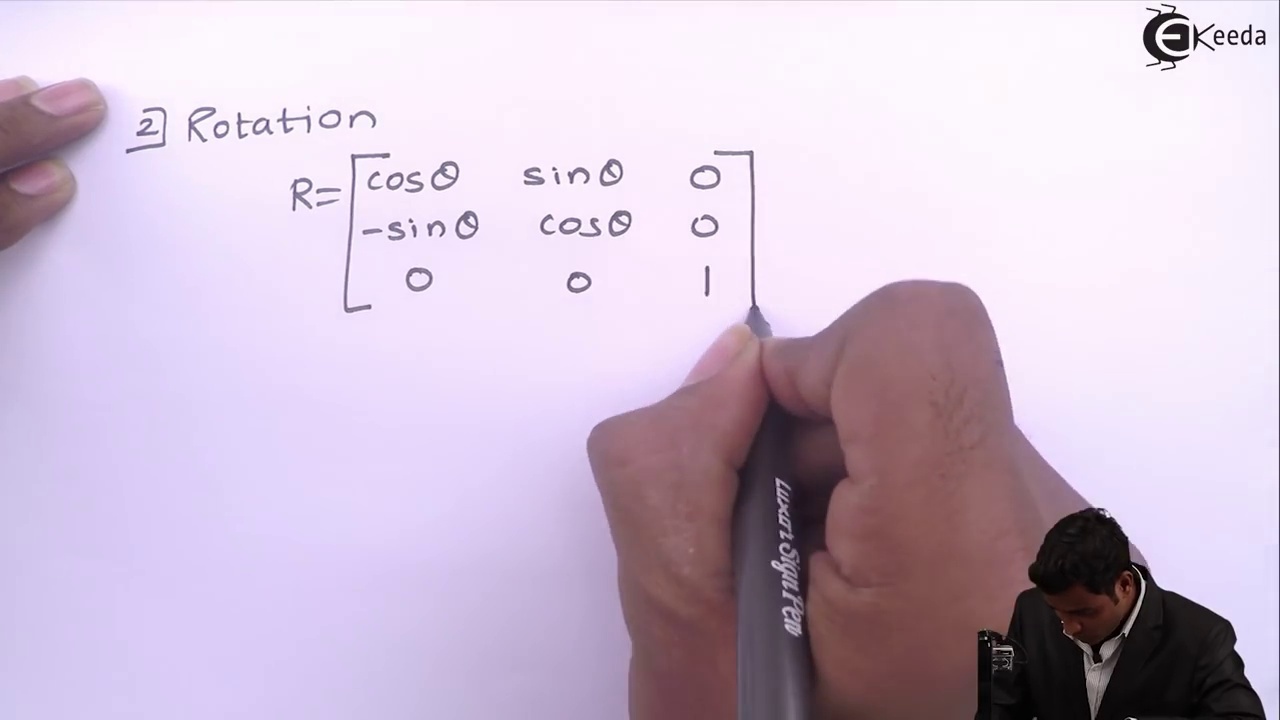 EKeeda
2] Rotation
R= [cosθ sinθ 0
-sinθ cosθ 0
0 0 1]
Luxor Sign Pen